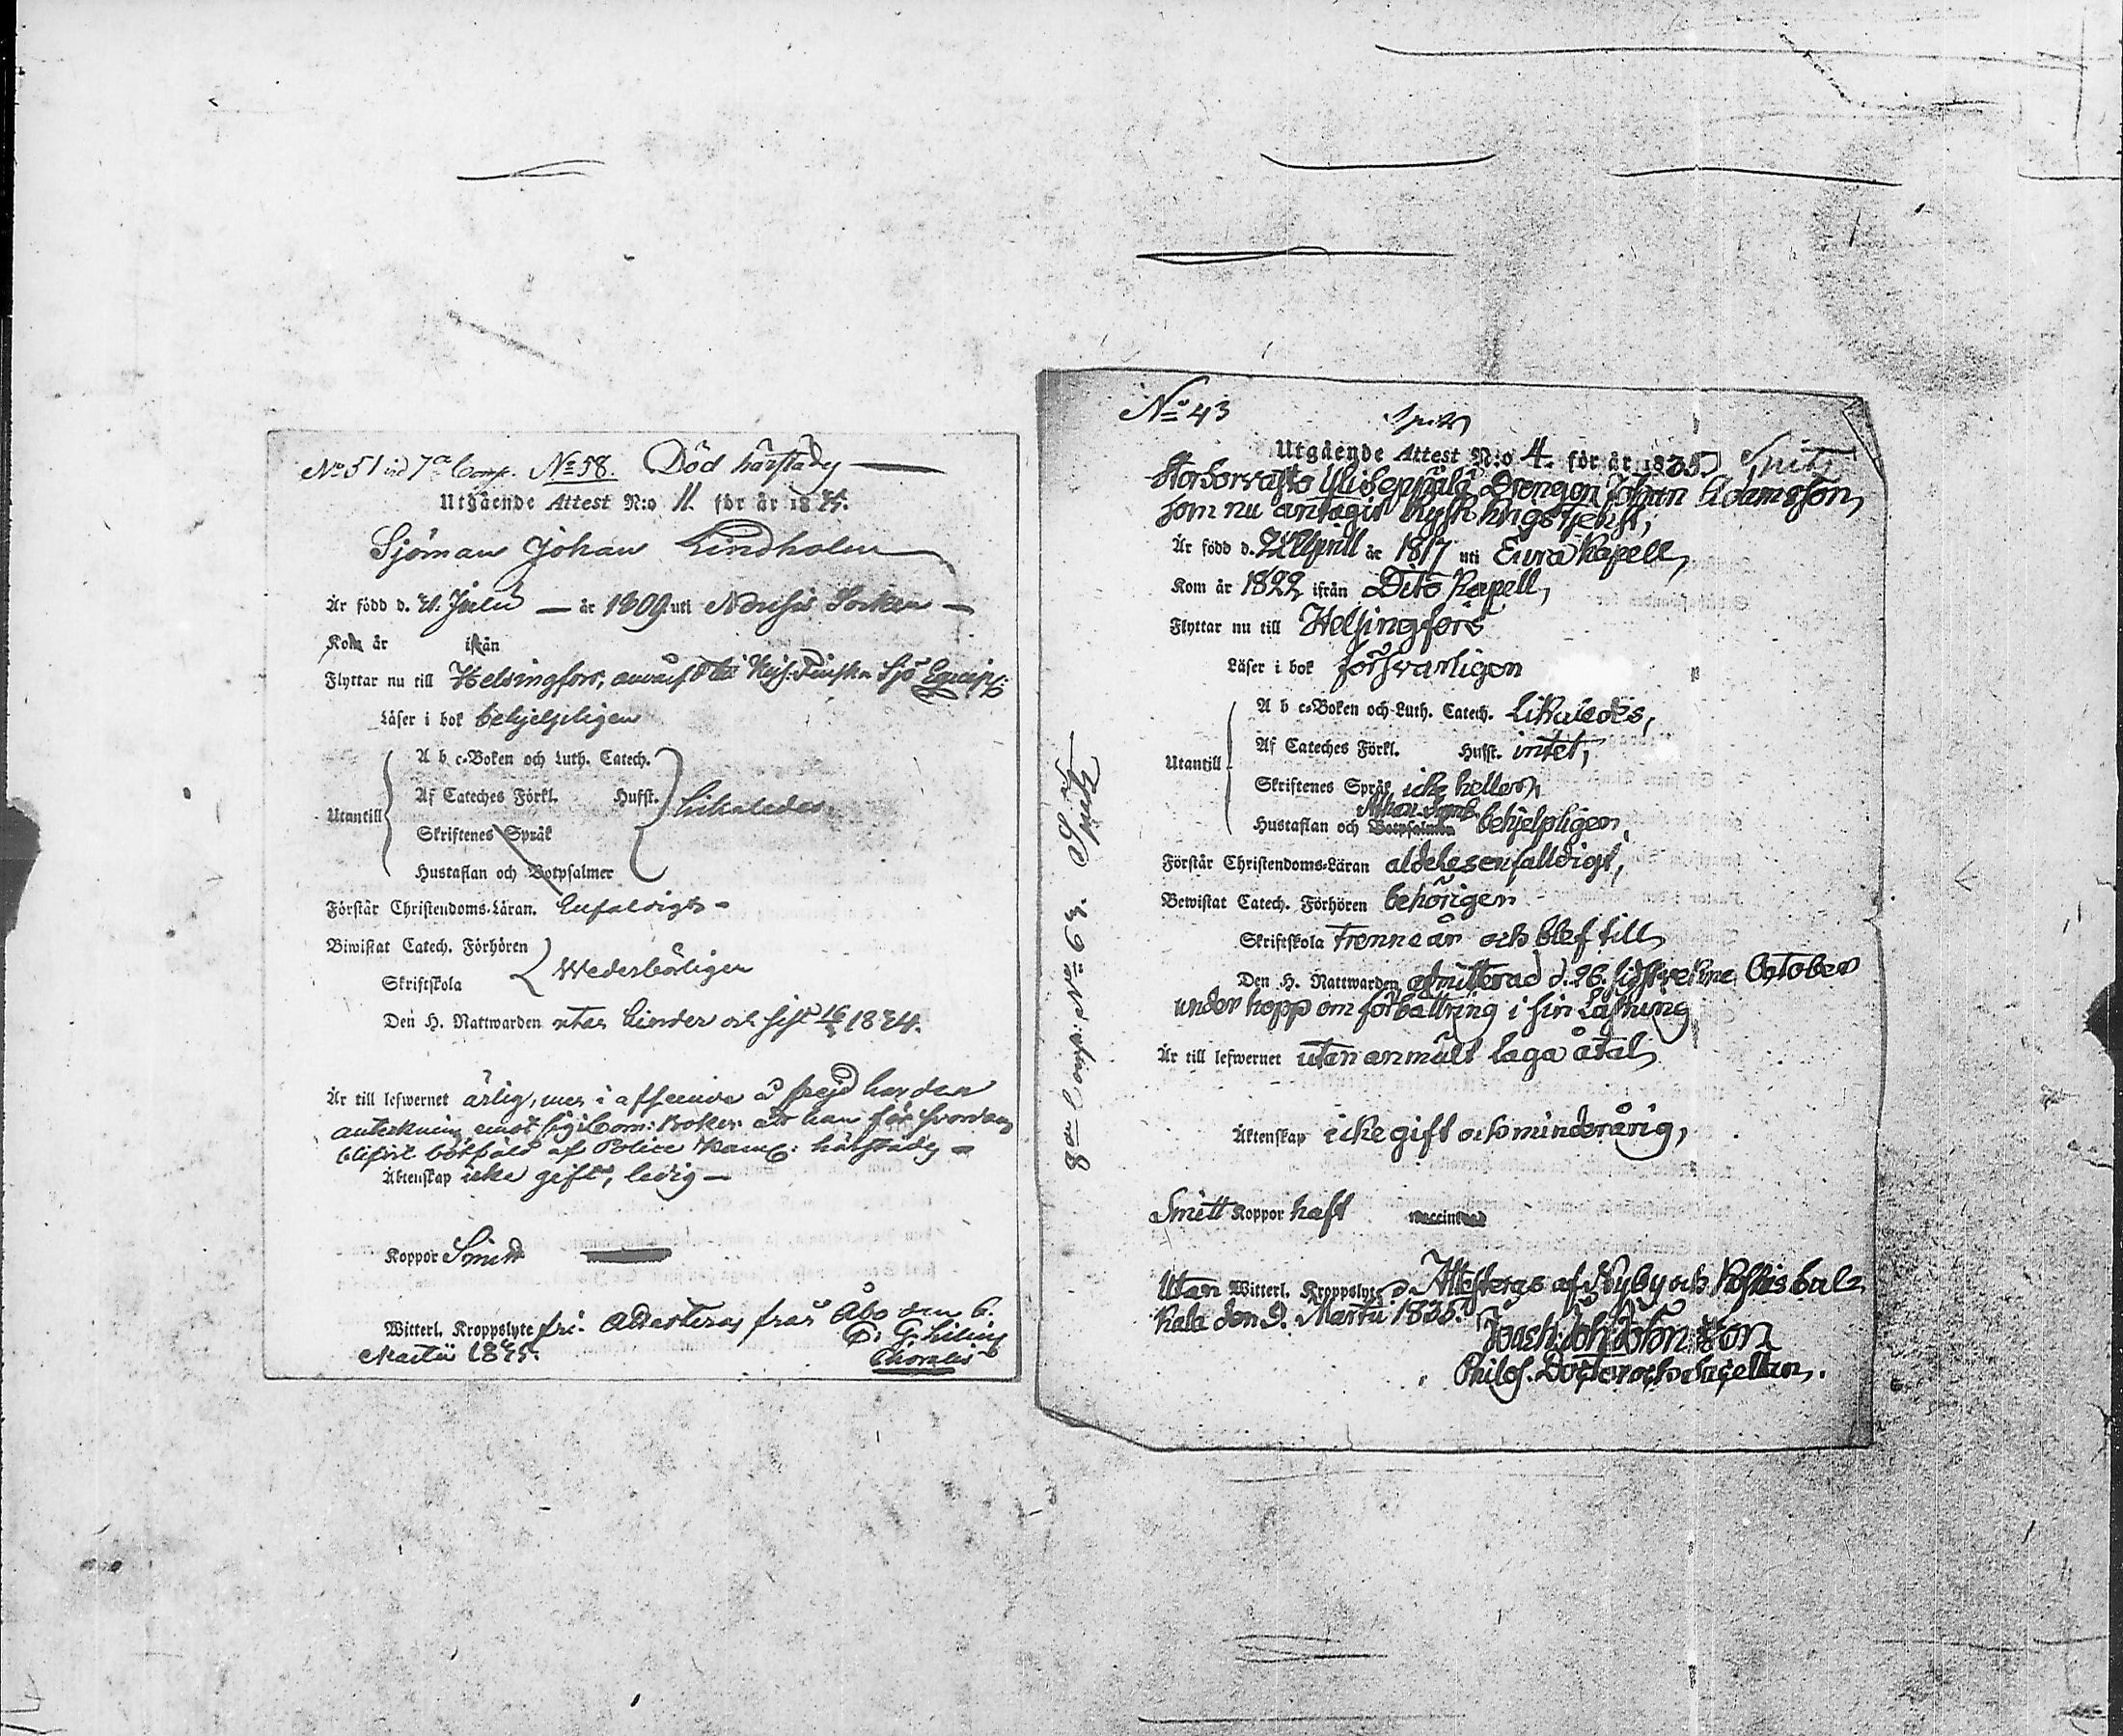 No 51 vid 7a Comp. No 58. Död härstädes
Utgående Attest N:o 11. för år 1835.
Sjöman Johan Lindholm
Är född d. 21. Julii — år 1809 uti Nousis Socken —
Kom år ifrån
Flyttar nu till Helsingfors, Kejs. Finska Sjö Equip:
Läser i bok behjelpligen
Utantill
A b c-Boken och Luth. Catech.
Af Cateches Förkl. Husft.
Likaledes
Skriftenes Språk
Hustaflan och Botpsalmer
Förstår Christendoms-Läran. Enfaldigt
Biwistat Catech. Förhören
Skriftskola
Wederbörligen
Den H. Nattwarden utan hinder och sist 1834.
Är till lefwernet ärlig, men i afseende å frejd har den
anteckning uti Com: Boken att han för
blifvit bötfäld af Police Kam: härstädes
Äktenskap icke gift, ledig —
Koppor
Witterl. Kroppslyte fri. Attesteras från Åbo den 6.
Martii 1835. G. Lilius
No 43
Spits
Utgående Attest N:o 4. för år 1835 Spits
Drengen Johan Adamsson,
som nu antagit krigstjenst,
Är född d. April år 1817 uti Eura Kapell,
Kom år 1822 ifrån Dito Kapell,
Flyttar nu till Helsingfors
Läser i bok försvarligen
Utantill
A b c-Boken och Luth. Catech. Likaledes,
Af Cateches Förkl. Husft. intet,
Skriftenes Språk icke heller,
Athan. Symb.
Hustaflan och Botpsalmer behjelpligen,
Förstår Christendoms-Läran aldeles enfalldigt,
Bewistat Catech. Förhören behörigen
Skriftskola trenne år och blef till
Den H. Nattwarden admitterad d. 26. sidstvekne October
under hopp om förbättring i sin Läsning
Är till lefwernet utan anmält laga åtal,
Äktenskap icke gift och minderårig,
Smitt Koppor haft
Utan Witterl. Kroppslyte, Attesteras af Nyby och
den 9. Martii 1835.
Philos. Doctor och Sacellan.
8de Comp: No 63. Spits